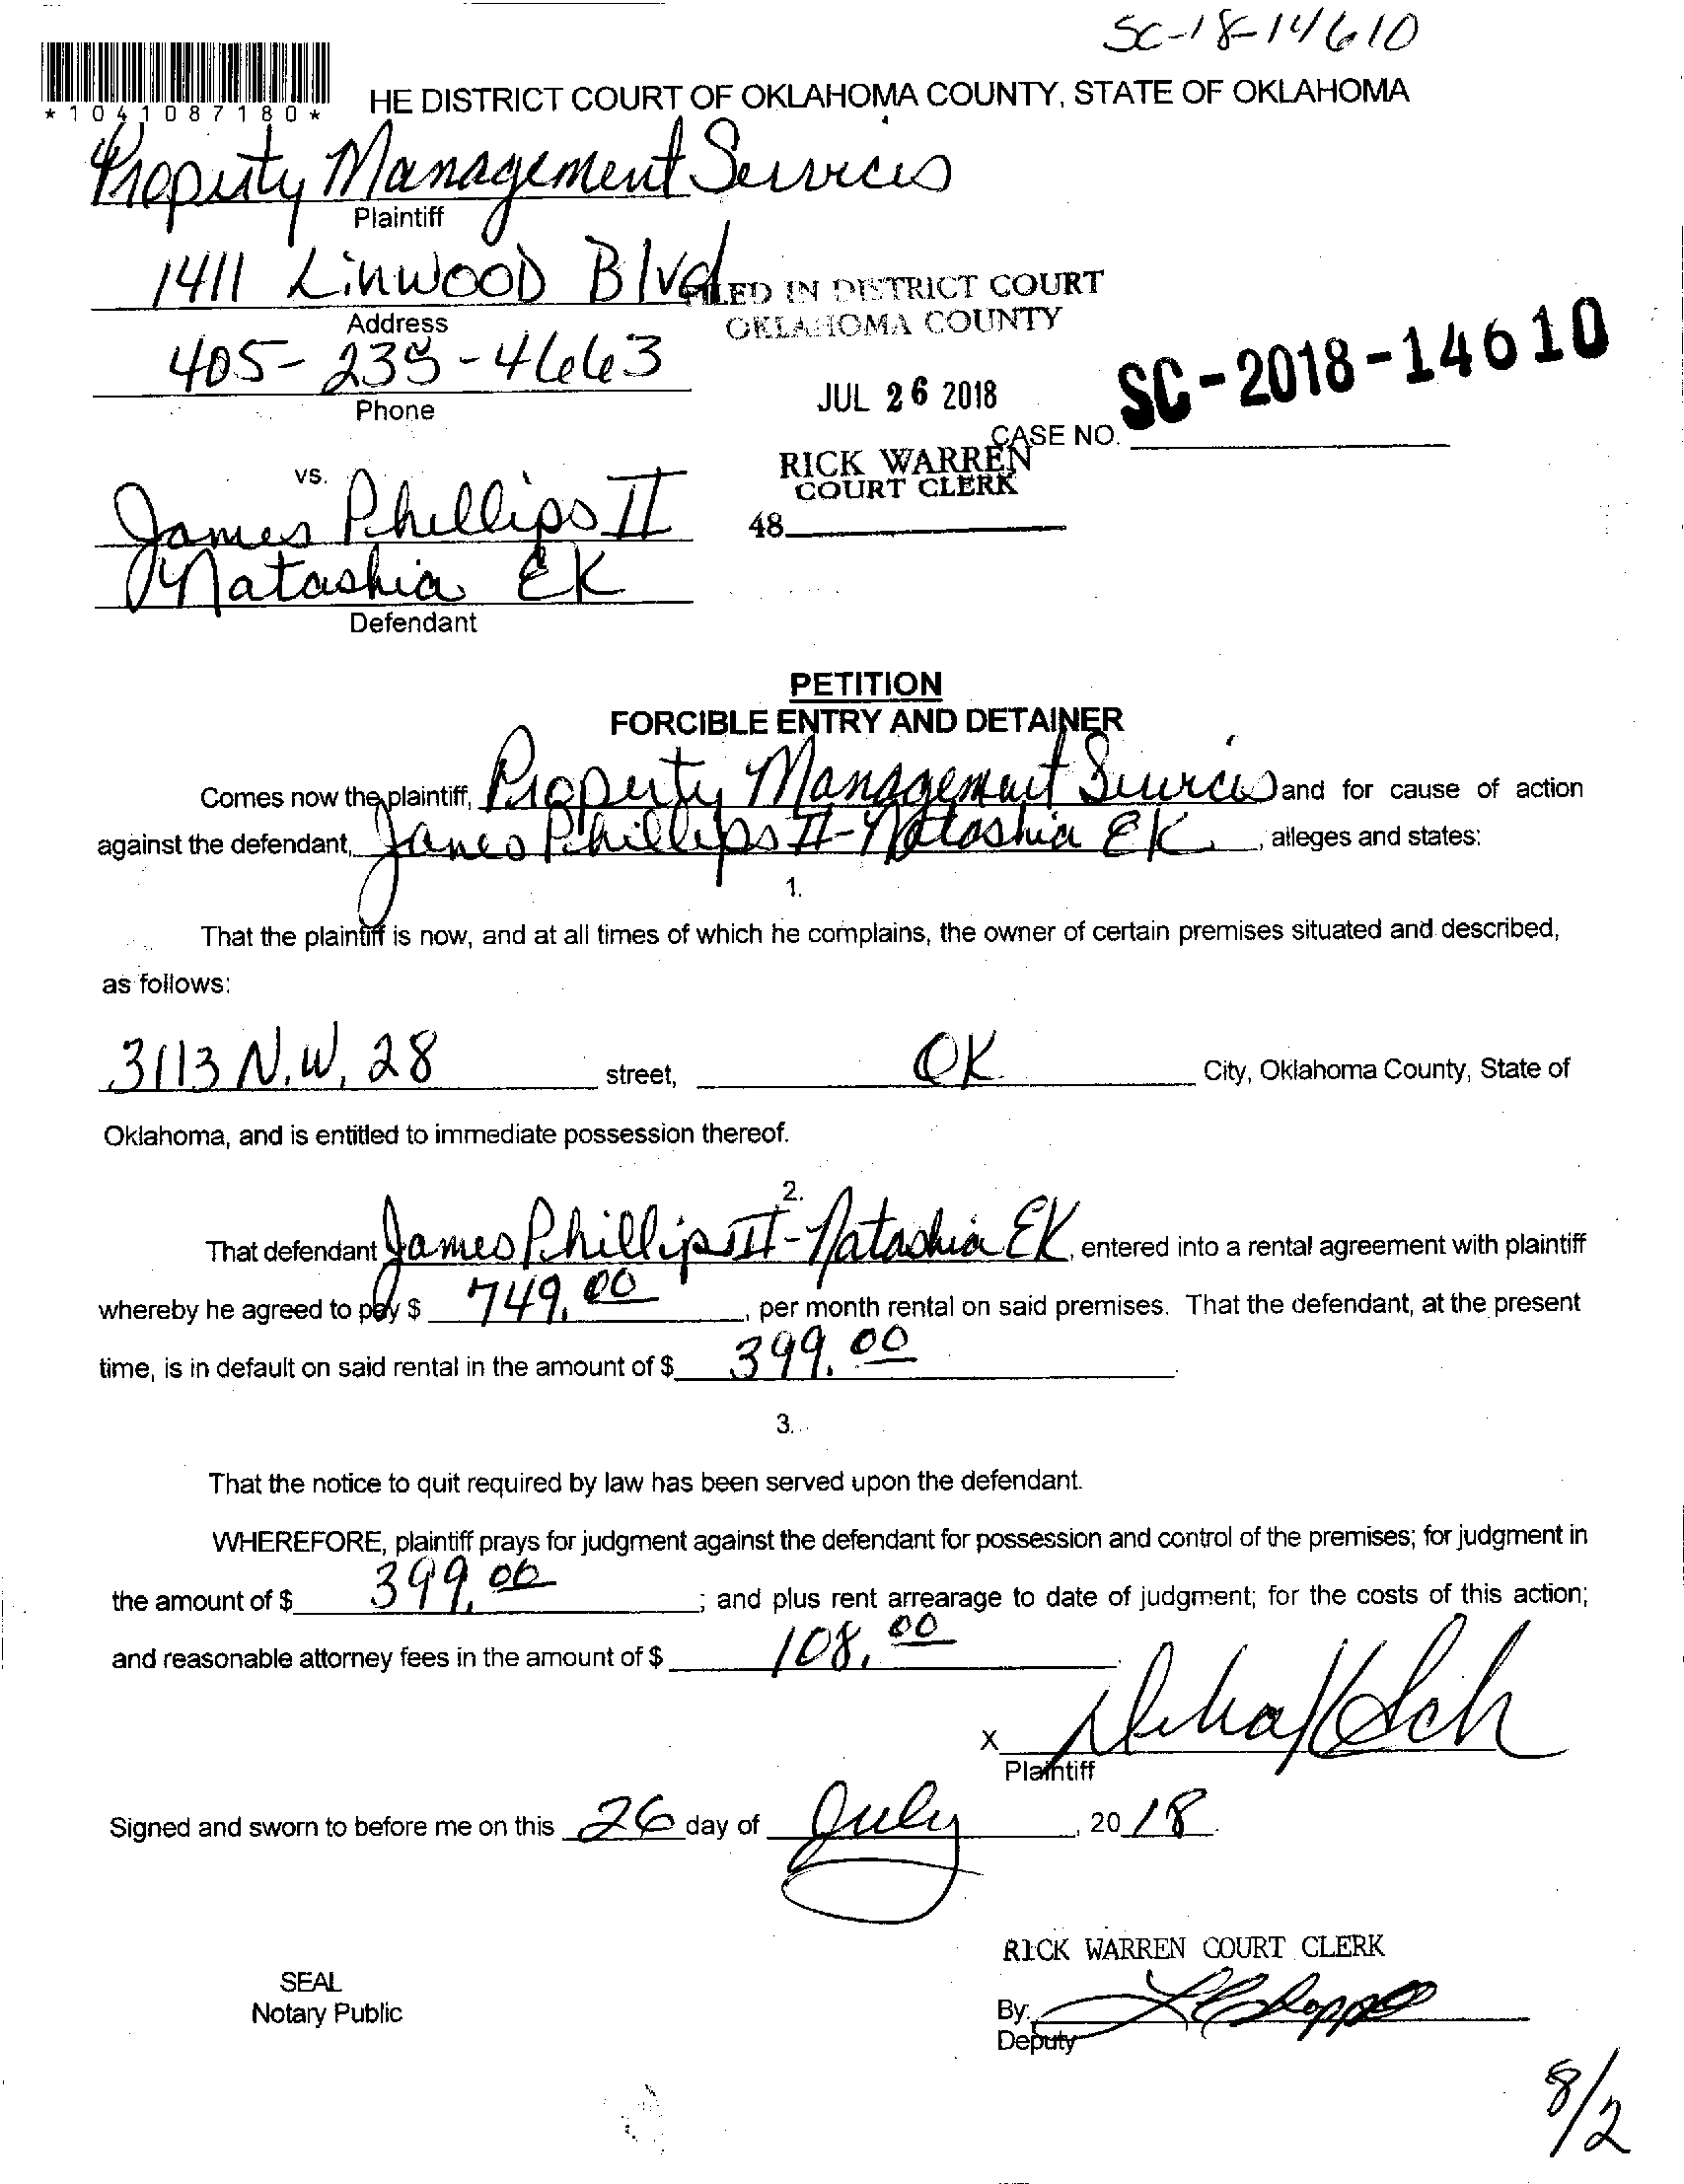 SC-18-14610
*1041087180*
HE DISTRICT COURT OF OKLAHOMA COUNTY, STATE OF OKLAHOMA
Property Management Services
Plaintiff
1411 Linwood Blvd
FILED IN DISTRICT COURT
OKLAHOMA COUNTY
Address
405-235-4663
Phone
JUL 26 2018
SC-2018-14610
CASE NO.
RICK WARREN
COURT CLERK
vs.
48
James Phillips II
Natashia EK
Defendant
PETITION
FORCIBLE ENTRY AND DETAINER
Comes now the plaintiff, Property Management Services and for cause of action
against the defendant, James Phillips II-Natashia EK, alleges and states:
1.
That the plaintiff is now, and at all times of which he complains, the owner of certain premises situated and described,
as follows:
3113 N.W. 28 street, OK City, Oklahoma County, State of
Oklahoma, and is entitled to immediate possession thereof.
2.
That defendant James Phillips II-Natashia EK, entered into a rental agreement with plaintiff
whereby he agreed to pay $ 749.00, per month rental on said premises. That the defendant, at the present
time, is in default on said rental in the amount of $ 399.00
3.
That the notice to quit required by law has been served upon the defendant.
WHEREFORE, plaintiff prays for judgment against the defendant for possession and control of the premises; for judgment in
the amount of $ 399.00; and plus rent arrearage to date of judgment; for the costs of this action;
and reasonable attorney fees in the amount of $ 108.00
X
Plaintiff
Signed and sworn to before me on this 26 day of July, 2018.
RICK WARREN COURT CLERK
SEAL
Notary Public
By:
Deputy
8/2